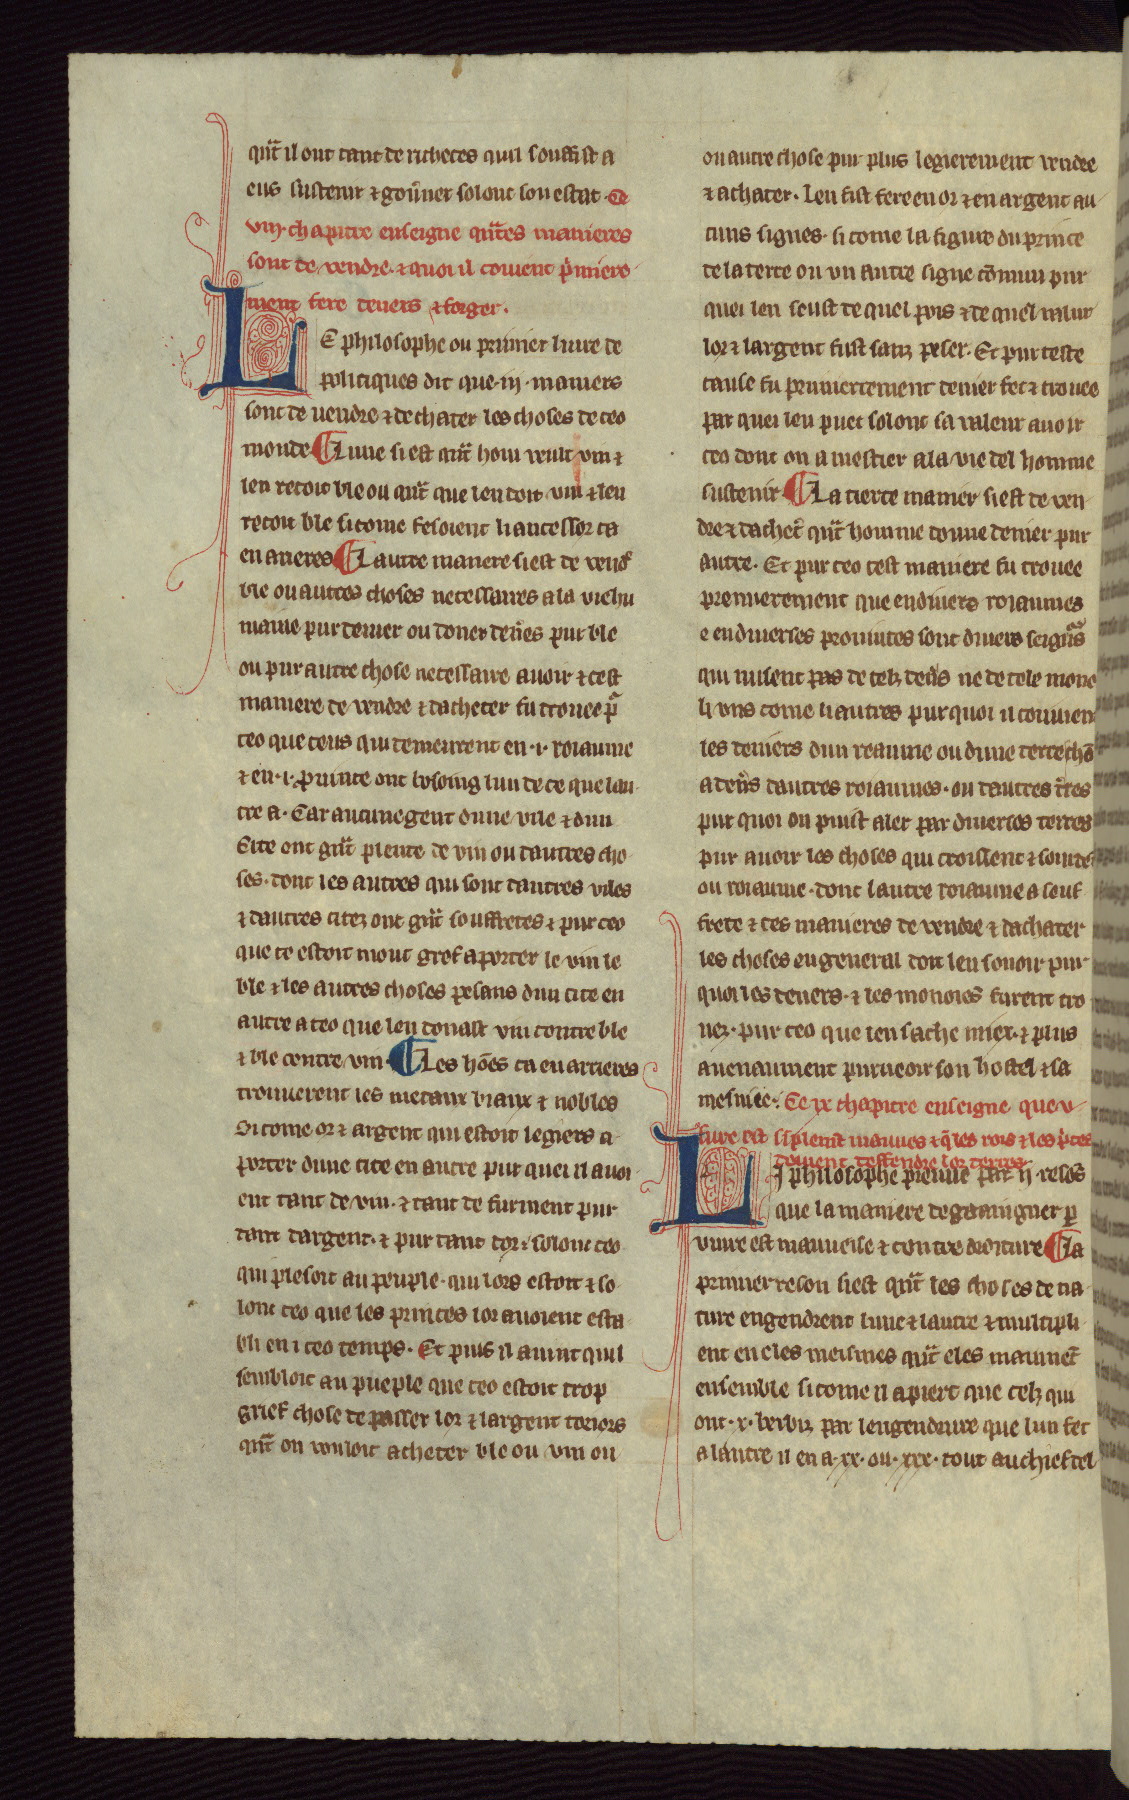 qnt̃ il ont tant de richeces quil souffist a
eus sustenir ⁊ gou̾ner solont son estat. Ce
viij. chapitre enseigne qñtes manieres
sont de vendre. ⁊ quoi il couient p̾miere
ment fere deners ⁊ forger.
LE philosophe ou primier liure de
politiques dit que .iij. maniers
sont de uendre ⁊ de chater les choses de ceo
monde ¶ Lune si est qnt̃ hom veult vin ⁊
len recoit ble ou qnt̃ que len doit vin ⁊ len
recoit ble si come fesoient li ancessor ca
en arieres ¶ Lautre manere si est de vend̾
ble ou autres choses necessaires a la vie hu
maine pur denier ou doner den̾es pur ble
ou pur autre chose necessaire auoir ⁊ cest
maniere de vendre ⁊ dacheter fu trouee pͣ
ceo que ceus qui demeurent en .i. roiaume
⁊ en .i. prouince ont besoing lun de ce que lau
tre a. Car aucune gent dune vile ⁊ dun
Cite ont gnt̃ plente de vin ou dautres cho
ses. dont les autres qui sont dautres viles
⁊ dautres citez ont gnt̃ souffretes ⁊ pur ceo
que ce estoit mout gref aporter le vin le
ble ⁊ les autres choses pesans dun cite en
autre a ceo que len donast vin contre ble
⁊ ble contre vin ¶ Les hom̃es ca en arrieres
trouuerent les metaux biaux ⁊ nobles
Si come or ⁊ argent qui estoit legiers a
porter dune cite en autre pur quei il auoi
ent tant de vin. ⁊ tant de furment pur
tant dargent. ⁊ pur tant dor ⁊ solonc ceo
qui plesoit au peuple. qui lors estoit ⁊ so
lont ceo que les princes lor auoient esta
bli en i ceo temps. Et puis il auint quil
sembloit au pueple que ceo estoit trop
grief chose de passer lor ⁊ largent toriors
qnt̃ on vouloit acheter ble ou vin ou
ou autre chose pur plus legierement vendre
⁊ achater. Len fist fere en or ⁊ en argent au
cuns signes. si come la figure du prince
de la terre ou vn autre signe cõmun pur
quei len seust de quel pois ⁊ de quel valur
lor ⁊ largent fust sanz peser. Et pur ceste
cause fu premierement denier fet ⁊ trouee
par quei len puet solont sa valeur auoir
ceo dont on a mestier a la vie del homme
sustenir ¶ La tierce manier si est de ven
dre ⁊ dachet̾ qnt̃ homme donne denier pur
autre. Et pur ceo cest maniere fu trouee
premierement que en diuers roiaumes
e en diuerses prouinces sont diuers seign̾s
qui nusent pas de telz den̾s ne de tele mone
li vns come li autres pur quoi il couuien
les deniers dun reaume ou dune terre chã
a den̾s dautres roiaumes. ou dautres t̾res
pur quoi on puist aler par diuerses terres
pur auoir les choses qui croissent ⁊ sont de
ou roiaume. dont lautre roiaume a souf
frete ⁊ ces manieres de vendre ⁊ dachater
les choses en general doit len sauoir pur
quoi les deners. ⁊ les monoies furent tro
uez. pur ceo que len sache miex. ⁊ plus
auenaument purueoir son hostel ⁊ sa
mesniee. Ce ix chapitre enseigne que v
sure est simplement mauues ⁊ q̃ les rois ⁊ les p̾ces
doiuent deffendre lor terres
LI philosophe preuue par ij. resons
que la maniere de gaaingner p
vsure est mauueise ⁊ contre droiture ¶ La
primier reson si est qnt̃ les choses de na
ture engendrent lune ⁊ lautre ⁊ multipli
ent en eles meismes qnt̃ eles mainnet̾
ensemble si come il apiert que celz qui
ont .x. berbiz par lengendrure que lun fet
a lautre il en a .xx. ou .xxx. tout au chief del